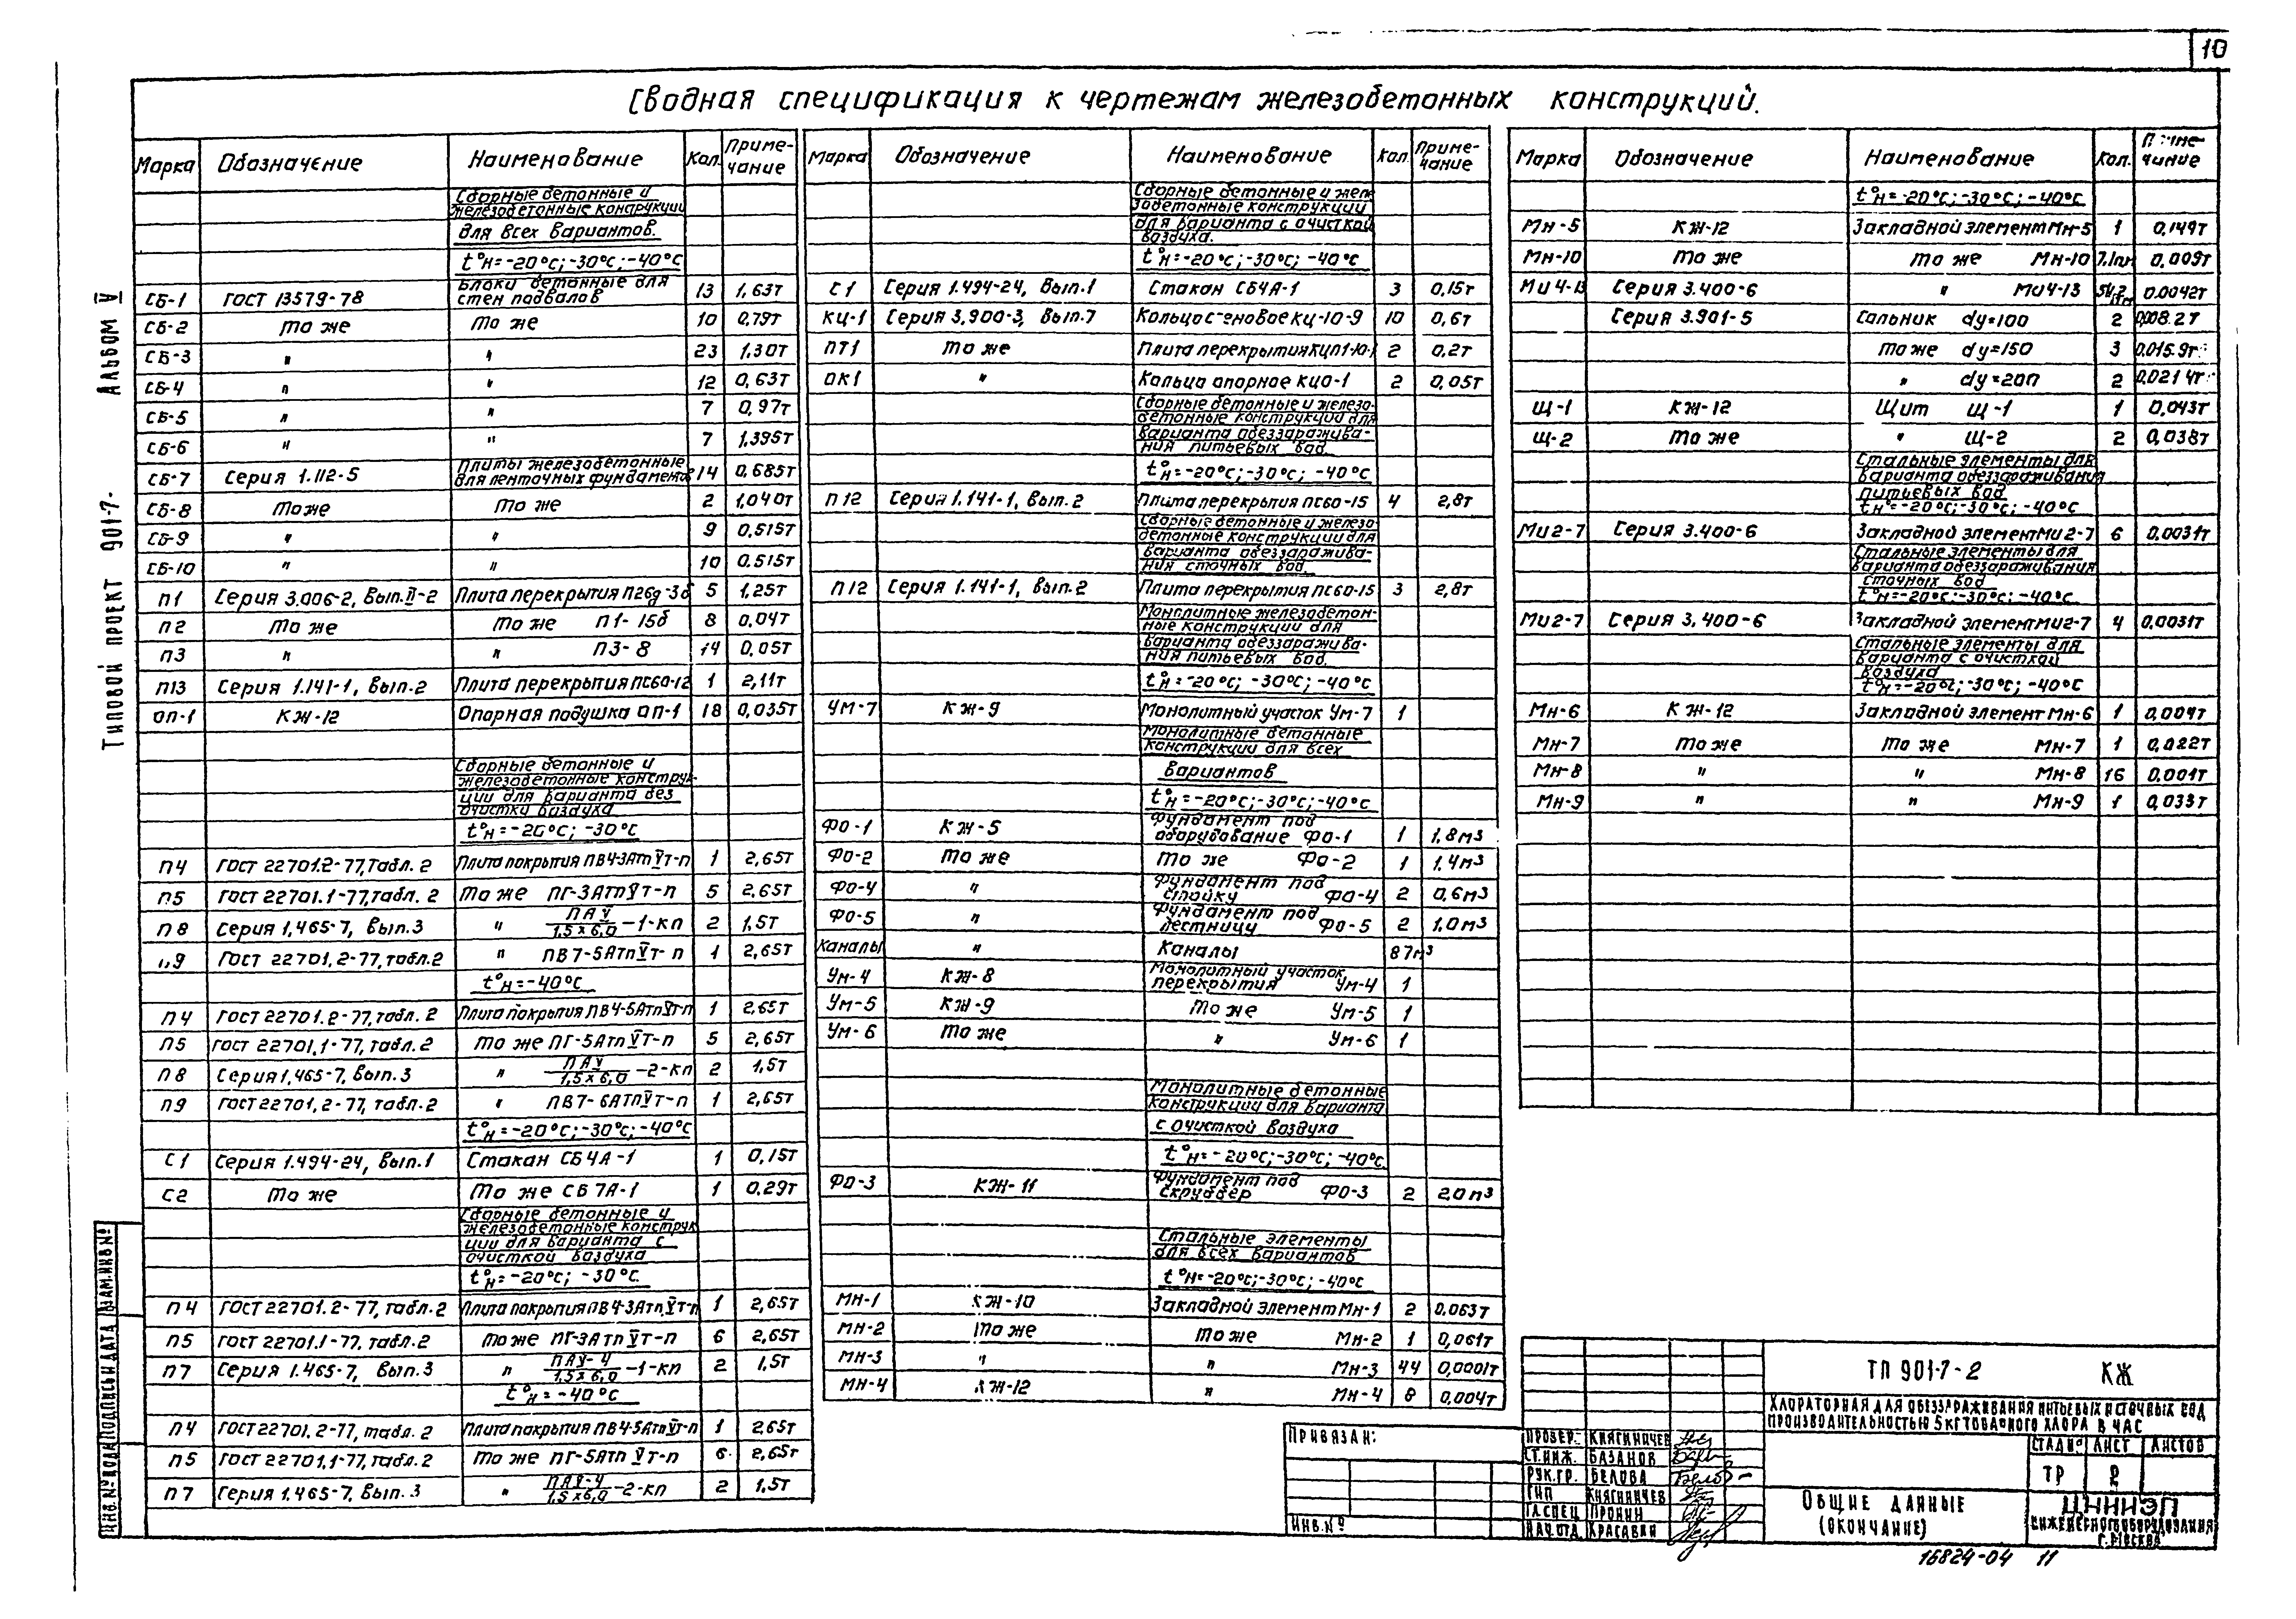 10
Сводная спецификация к чертежам железобетонных конструкций.
Альбом V
Типовой проект 901-7-
Марка Обозначение Наименование Кол. Приме-
чание
Сборные бетонные и
железобетонные конструкции
для всех вариантов.
t°н=-20°С; -30°С; -40°С
СБ-1 ГОСТ 13579-78 Блоки бетонные для
стен подвалов 13 1,63т
СБ-2 то же то же 10 0,79т
СБ-3 " " 23 1,30т
СБ-4 " " 12 0,63т
СБ-5 " " 7 0,97т
СБ-6 " " 7 1,395т
СБ-7 Серия 1.112-5 Плиты железобетонные
для ленточных фундаментов 14 0,685т
СБ-8 то же то же 2 1,040т
СБ-9 " " 9 0,515т
СБ-10 " " 10 0.515т
П1 Серия 3.006-2, Вып. II-2 Плита перекрытия П26д-3б 5 1,25т
П2 то же то же П1-15б 8 0,04т
П3 " " П3-8 14 0,05т
П13 Серия 1.141-1, Вып.2 Плита перекрытия ПС60-12 1 2,11т
ОП-1 КЖ-12 Опорная подушка ОП-1 18 0,035т
Сборные бетонные и
железобетонные конструк-
ции для варианта без
очистки воздуха
t°н=-20°С; -30°С
П4 ГОСТ 22701.2-77, Табл. 2 Плита покрытия ПВ4-3АтVт-п 1 2,65т
П5 ГОСТ 22701.1-77, табл. 2 То же ПГ-3АтпVт-п 5 2,65т
П8 Серия 1.465-7, Вып.3 " ПАV/1,5х6,0 -1-кп 2 1,5т
ГОСТ 22701.2-77, табл.2 " ПВ7-5АтпVт-п 1 2,65т
t°н=-40°С
П4 ГОСТ 22701.2-77, табл. 2 Плита покрытия ПВ4-5АтпVт-п 1 2,65т
П5 ГОСТ 22701.1-77, табл. 2 то же ПГ-5АтпVт-п 5 2,65т
П8 Серия 1.465-7, Вып. 3 " ПАV/1,5х6,0 -2-кп 2 1,5т
П9 ГОСТ 22701.2-77, табл.2 " ПВ7-6АтпVт-п 1 2,65т
t°н=-20°С; -30°С; -40°С
С1 Серия 1.494-24, Вып.1 Стакан СБ4А-1 1 0,15т
С2 То же То же СБ7А-1 1 0.29т
Сборные бетонные и
железобетонные конструк
ции для варианта с
очисткой воздуха
t°н=-20°С; -30°С.
П4 ГОСТ 22701.2-77, табл.2 Плита покрытия ПВ4-3АтпVт-п 1 2,65т
П5 ГОСТ 22701.1-77, табл.2 то же ПГ-3АтпVт-п 6 2,65т
П7 Серия 1.465-7, Вып.3 " ПАV-4/1,5х6,0 -1-кп 2 1,5т
t°н=-40°С
П4 ГОСТ 22701.2-77, табл.2 Плита покрытия ПВ4-5АтпVт-п 1 2,65т
П5 ГОСТ 22701.1-77, табл.2 то же ПГ-5Атп Vт-п 6 2,65т
П7 Серия 1.465-7, Вып. 3 " ПАV-4/1,5х6,0 -2-кп 2 1,5т
Марка Обозначение Наименование Кол. Приме-
чание
Сборные бетонные и желе
зобетонные конструкции
для варианта с очисткой
воздуха.
t°н=-20°С; -30°С; -40°С
С1 Серия 1.494-24, Вып.1 Стакан СБ4А-1 3 0,15т
КЦ-1 Серия 3.900-3, Вып.7 Кольцо стеновое КЦ-10-9 10 0,6т
ПТ1 то же Плита перекрытия КЦП1-10-1 2 0,2т
ОК1 " Кольцо опорное КЦО-1 2 0,05т
Сборные бетонные и железо-
бетонные конструкции для
варианта обеззаражива-
ния питьевых вод
t°н=-20°С; -30°С; -40°С
П12 Серия 1.141-1, Вып.2 Плита перекрытия ПС60-15 4 2,8т
Сборные бетонные и железо-
бетонные конструкции для
варианта обеззаражива-
ния сточных вод
П12 Серия 1.141-1, Вып.2 Плита перекрытия ПС60-15 3 2,8т
Монолитные железобетон-
ные конструкции для
варианта обеззаражива-
ния питьевых вод.
t°н=-20°С; -30°С; -40°С
УМ-7 КЖ-9 Монолитный участок Ум-7 1
Монолитные бетонные
конструкции для всех
вариантов
t°н=-20°С; -30°С; -40°С
ФО-1 КЖ-5 Фундамент под
оборудование ФО-1 1 1,8м³
ФО-2 то же то же ФО-2 1 1,4м³
ФО-4 " Фундамент под
стойку ФО-4 2 0,6м³
ФО-5 " Фундамент под
лестницу ФО-5 2 1,0м³
Каналы " Каналы 87м³
Ум-4 КЖ-8 Монолитный участок
перекрытия Ум-4 1
Ум-5 КЖ-9 То же Ум-5 1
Ум-6 То же " Ум-6 1
Монолитные бетонные
конструкции для варианта
с очисткой воздуха
t°н=-20°С; -30°С; -40°С
ФО-3 КЖ-11 Фундамент под
скруббер ФО-3 2 2.0м³
Стальные элементы
для всех вариантов
t°н=-20°С; -30°С; -40°С
МН-1 КЖ-10 Закладной элемент Мн-1 2 0,063т
МН-2 то же То же Мн-2 1 0,061т
МН-3 " " Мн-3 44 0,0001т
МН-4 КЖ-12 " Мн-4 8 0,004т
Марка Обозначение Наименование Кол.
чание
t°н=-20°С; -30°С; -40°С
Мн-5 КЖ-12 Закладной элемент Мн-5 1 0,149т
Мн-10 То же То же Мн-10 0,009т
МИ4-13 Серия 3.400-6 " МИ4-13 0.0042т
Серия 3.901-5 Сальник dy=100 2
то же dy=150 3
" dy=200 2
Щ-1 КЖ-12 Щит Щ-1 1 0,043т
Щ-2 То же " Щ-2 2 0,038т
Стальные элементы для
варианта обеззараживания
питьевых вод
t°н=-20°С; -30°С; -40°С
МИ2-7 Серия 3.400-6 Закладной элемент МИ2-7 6 0,0031т
Стальные элементы для
варианта обеззараживания
сточных вод
t°н=-20°С; -30°С; -40°С
МИ2-7 Серия 3.400-6 Закладной элемент МИ2-7 4 0,0031т
Стальные элементы для
варианта с очисткой
воздуха
t°н=-20°С; -30°С; -40°С
Мн-6 КЖ-12 Закладной элемент Мн-6 1 0,004т
Мн-7 То же То же Мн-7 1 0,022т
Мн-8 " " Мн-8 16 0.001т
Мн-9 " " Мн-9 1 0,033т
ТП 901-7-2 КЖ
ХЛОРАТОРНАЯ ДЛЯ ОБЕЗЗАРАЖИВАНИЯ ПИТЬЕВЫХ И СТОЧНЫХ ВОД
ПРОИЗВОДИТЕЛЬНОСТЬЮ 5 КГ ТОВАРНОГО ХЛОРА В ЧАС
СТАДИЯ ЛИСТ ЛИСТОВ
ТР 2
ОБЩИЕ ДАННЫЕ
(ОКОНЧАНИЕ)
ЦНИИЭП
ИНЖЕНЕРНОГО ОБОРУДОВАНИЯ
Г. МОСКВА
ПРОВЕР. КНЯГИНИЧЕВ
СТ.ИНЖ. БАЗАНОВ
РУК.ГР. БЕЛОВА
ГИП КНЯГИНИЧЕВ
ГЛ.СПЕЦ ПРОНИН
НАЧ.ОТД КРАСАВИН
ПРИВЯЗАН:
ИНВ.№
ИНВ.№ ПОДЛ ПОДПИСЬ И ДАТА ВЗАМ.ИНВ№
16824-04 11